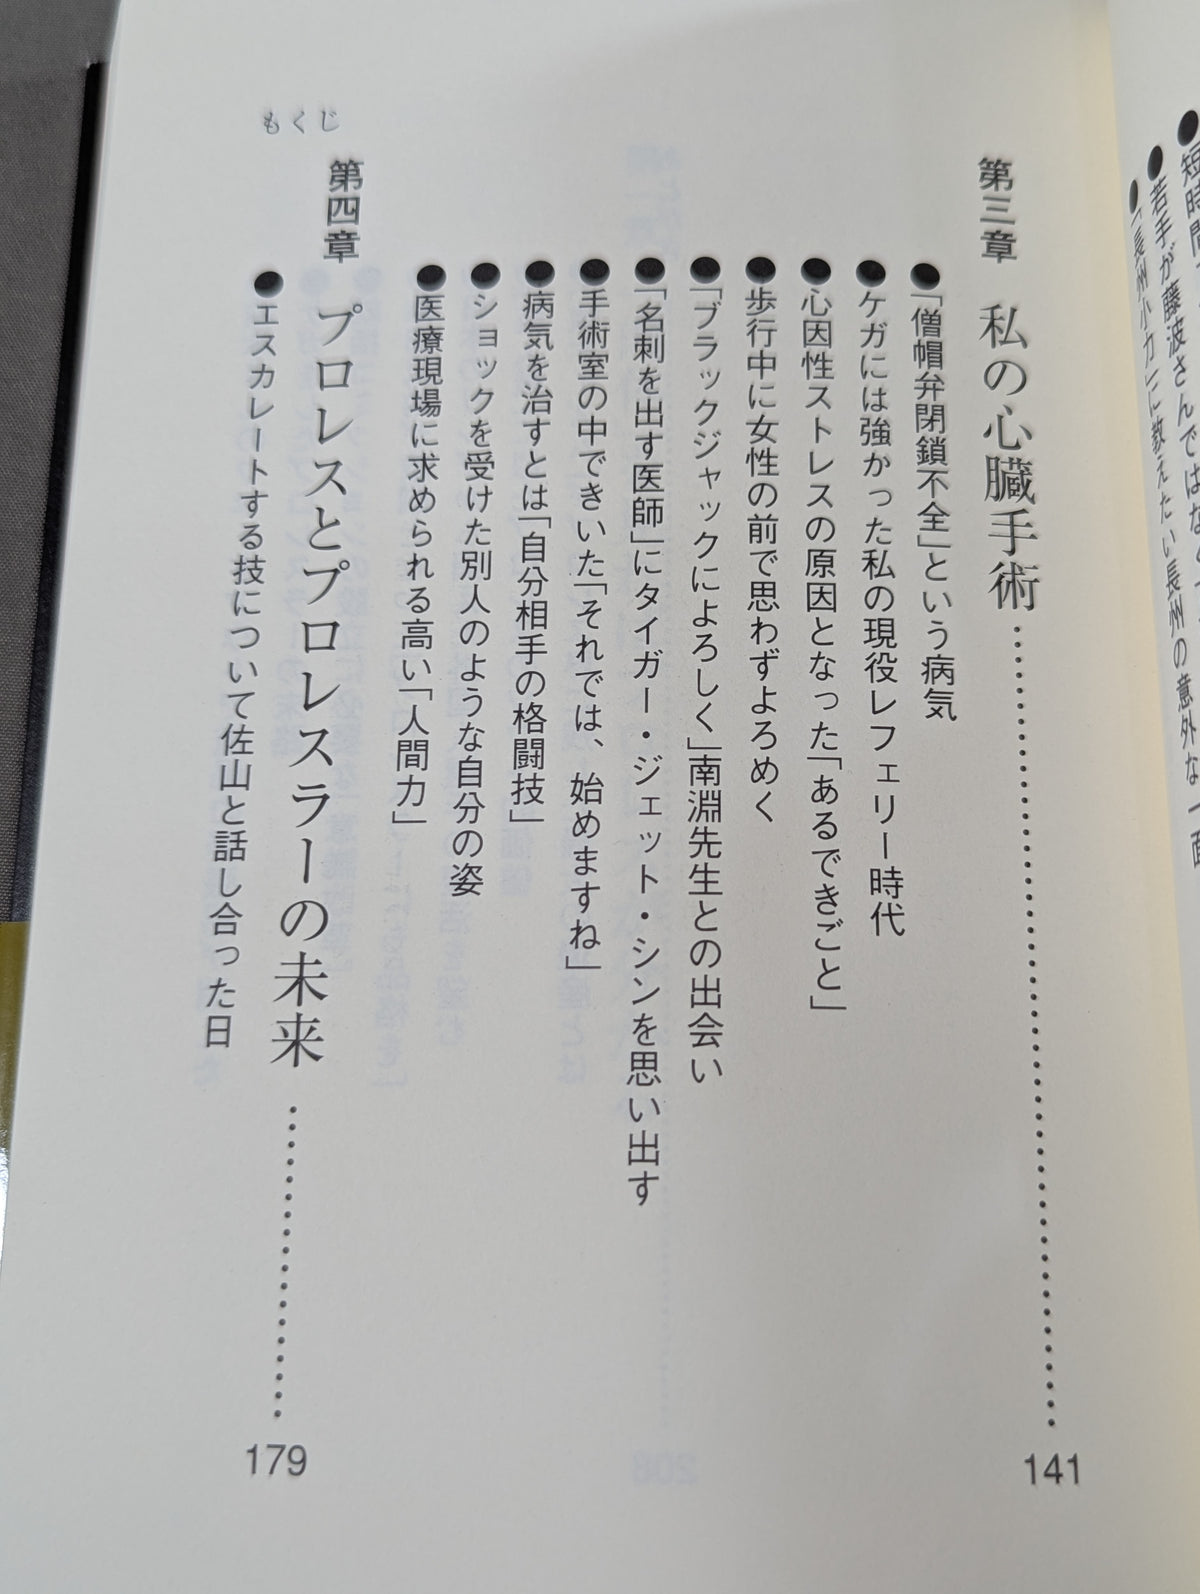 ● 短時間
● 若手が藤波さんではな
● 「長州小力」に教えたい長州の意外な一面
第三章 私の心臓手術 141
● 「僧帽弁閉鎖不全」という病気
● ケガには強かった私の現役レフェリー時代
● 心因性ストレスの原因となった「あるできごと」
● 歩行中に女性の前で思わずよろめく
● 「ブラックジャックによろしく」南淵先生との出会い
● 「名刺を出す医師」にタイガー・ジェット・シンを思い出す
● 手術室の中できいた「それでは、始めますね」
● 病気を治すとは「自分相手の格闘技」
● ショックを受けた別人のような自分の姿
● 医療現場に求められる高い「人間力」
第四章 プロレスとプロレスラーの未来 179
● エスカレートする技について佐山と話し合った日
もくじ